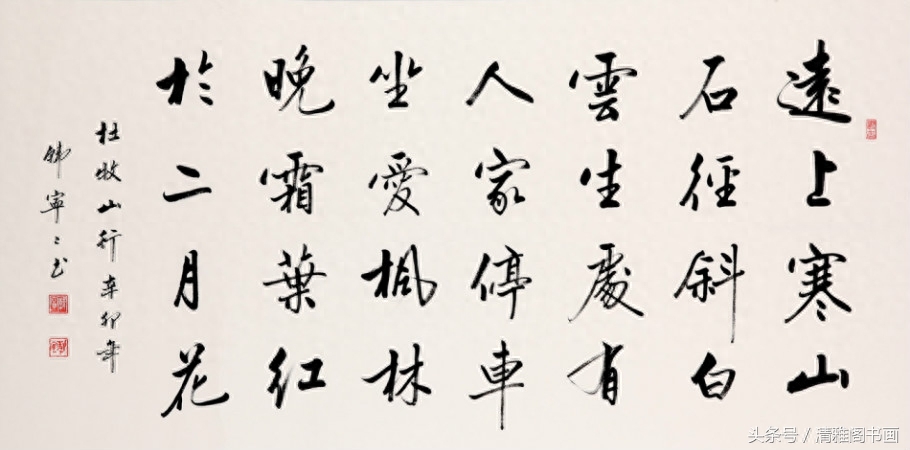 遠上寒山
石徑斜白
雲生處有
人家停車
坐愛楓林
晚霜葉紅
於二月花
杜牧山行辛卯年
寧〻书
头条号／清雅阁书画